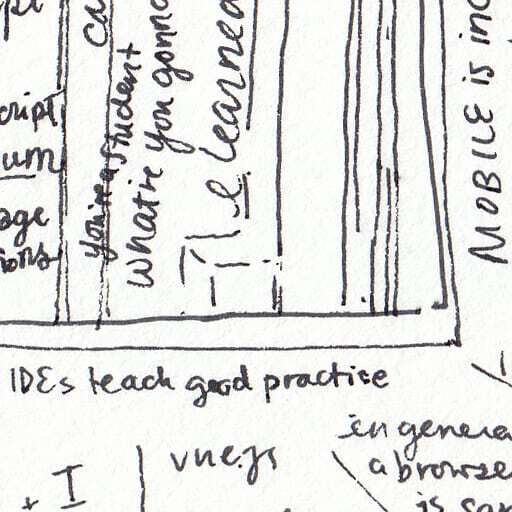 cript
um
age
ions
you're a student
what're you gonna
learned
MOBILE is inc
IDEs teach good practice
vue.js
in genera
a browse
is
I